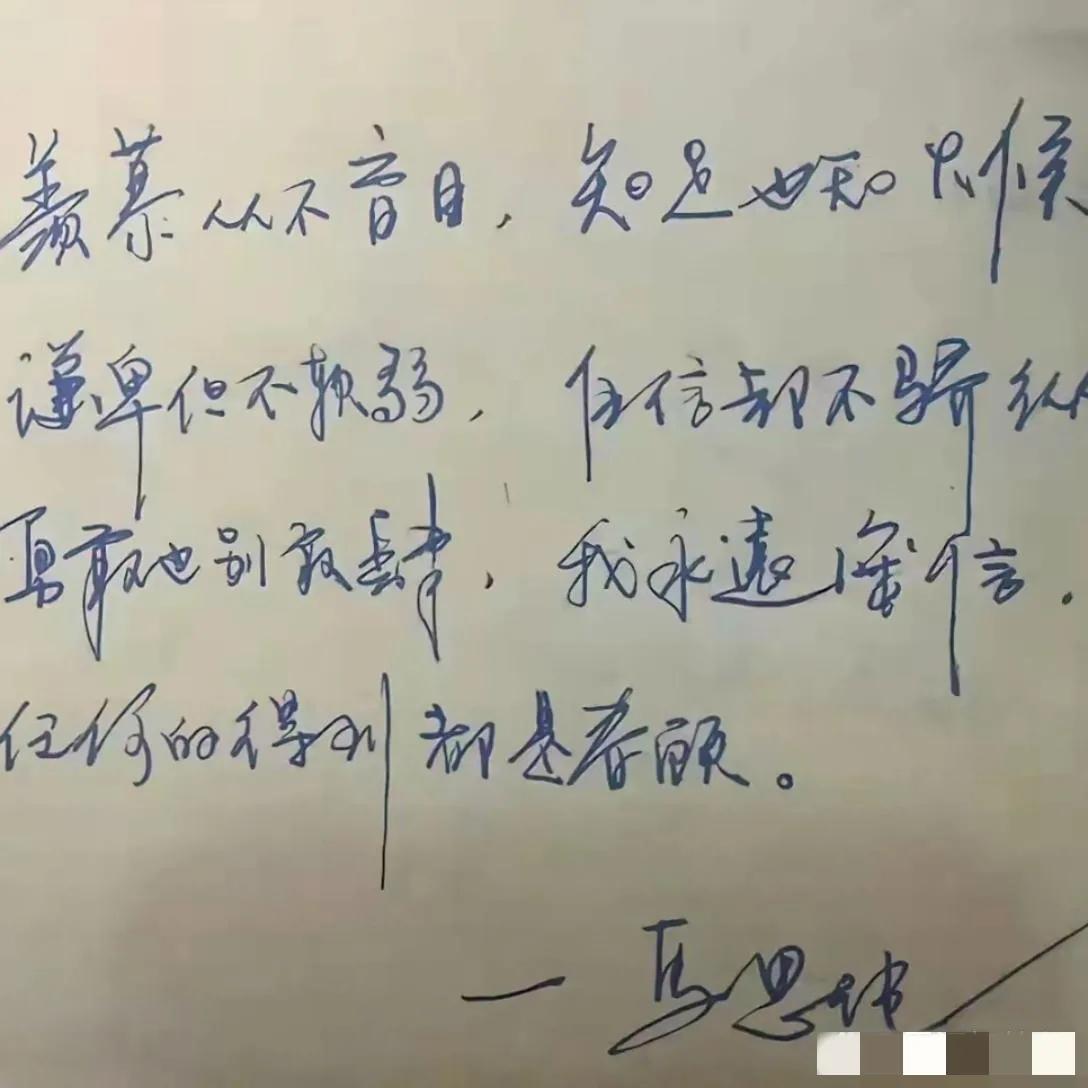 羡慕从不盲目,知足也知火候
谦卑但不软弱,自信却不骄纵
勇敢也别放肆,我永远深信.
任何的得到都是眷顾。
一马思纯